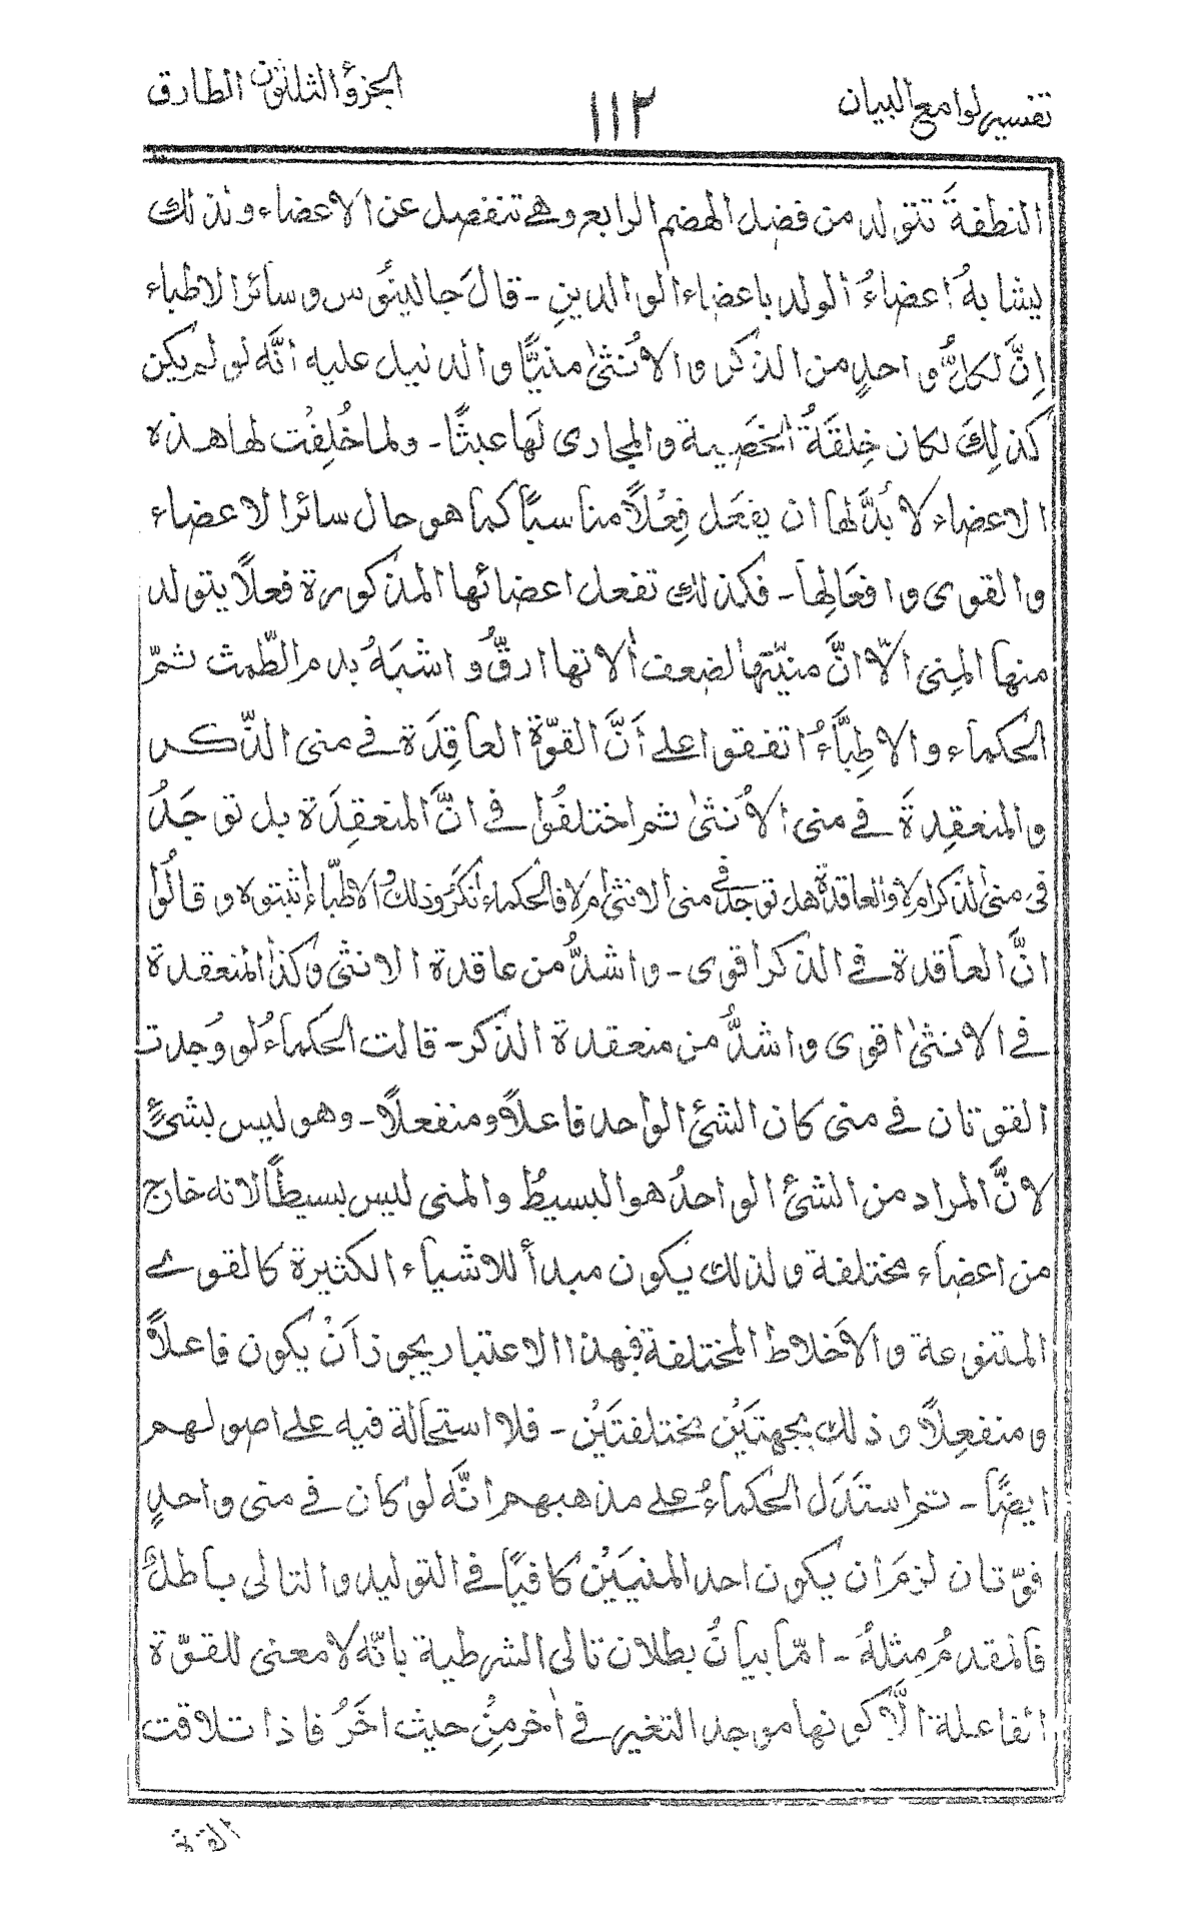 تفسير لوامع البيان
١١٢
الجزؤ الثلثون الطارق
النطفةَ تتولد من فضل الهضم الرابع وهي تنفصل عن الاعضاء ولذلك
يشابهُ اعضاءُ الولد باعضاء الوالدينِ - قالَ جالينُوس وسائر الاطباء
اِنَّ لكلِّ واحدٍ من الذكر والاُنثىٰ منيًّا والدليل عليه انَّه لو لم يكن
كذلِكَ لكان خِلقَةُ الخصية والمجارى لَها عبثًا - ولما خُلِقت لها هذه
الاعضاء لا بُدَّ لها ان يفعَل فِعْلاً مناسبًا كما هو حال سائر الاعضاء
والقوى وافعالِها - فكذلك تفعل اعضائها المذكورة فعلاً يتولد
منها المِنى الاّ انَّ منيّتها لضعف اٰلاتها ارقُّ واشبَهُ بدم الطّمث ثمّ
الحكماء والاطِبَّاءُ اتفقوا على اَنَّ القوّة العاقِدَة في منى الذّكر
والمنعقِدةَ في منى الاُنثىٰ ثم اختلفُوا في انَّ المنعقِدَة بل توجَدُ
في منى الذكر ام لا والعاقدة هل توجد في منى الانثى ام لا فالحكماء انكروا ذلك والاطبّاء اثبتوه وقالُوا
انَّ العاقدة في الذكر اقوى - واشدُّ من عاقدة الانثى وكذا المنعقدة
في الانثىٰ اقوى واشدُّ من منعقدة الذكر - قالت الحكماءُ لو وُجدت
القوتان في منى كان الشئ الواحد فاعلاً ومنفعلاً - وهو ليس بشئٍ
لانَّ المراد من الشئ الواحدُ هو البسيطُ والمنى ليس بسيطاً لانه خارج
من اعضاء مختلفة ولذلك يكون مبدأ للاشياء الكثيرة كالقوے
المتنوعة والاَخلاط المختلفة فبهذا الاعتبار يجوز اَنْ يكون فاعلاً
ومنفعِلاً وذلك بجهتَيْن مختلفتَيْن - فلا استحالة فيه على اصولهم
ايضًا - ثم استَدَل الحكماءُ على مذهبهم انَّه لو كان في منى واحدٍ
قوّتان لزمَ ان يكون احد المنيَيْن كافيًا في التوليد والتالى باطلٌ
فالمقدمُ مِثلهُ - امّا بيانُ بطلان تالى الشرطية بانّه لا معنى للقوّة
الفاعلة الَّا كونها موجد التغير في اٰخر مِنْ حيث اٰخَرُ فاذا تلاقت
القوة